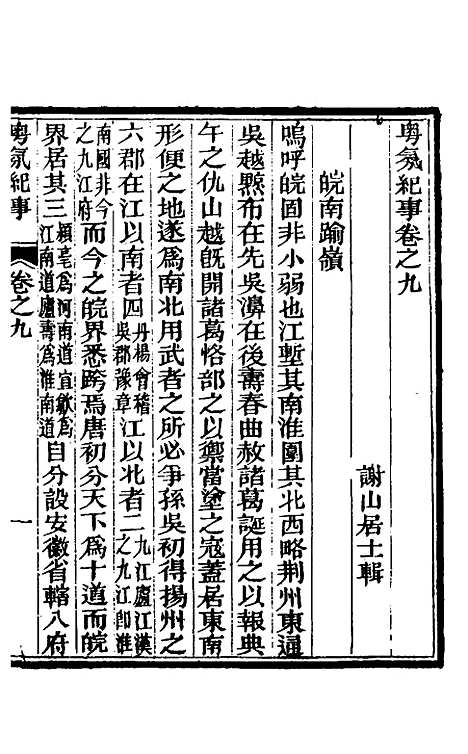 粵氛紀事卷之九
謝山居士輯
皖南踰嶺
嗚呼皖固非小弱也江塹其南淮圍其北西略荆州東通
吳越黥布在先吳濞在後壽春曲赦諸葛誕用之以報典
午之仇山越旣開諸葛恪部之以禦當塗之寇蓋居東南
形便之地遂爲南北用武者之所必爭孫吳初得揚州之
六郡在江以南者四丹楊會稽吳郡豫章江以北者二九江廬江漢之九江卽淮
南國非今之九江府而今之皖界悉跨焉唐初分天下爲十道而皖
界居其三潁亳爲河南道宣歙爲江南道廬壽爲淮南道自分設安徽省轄八府
粵氛紀事
卷之九
一